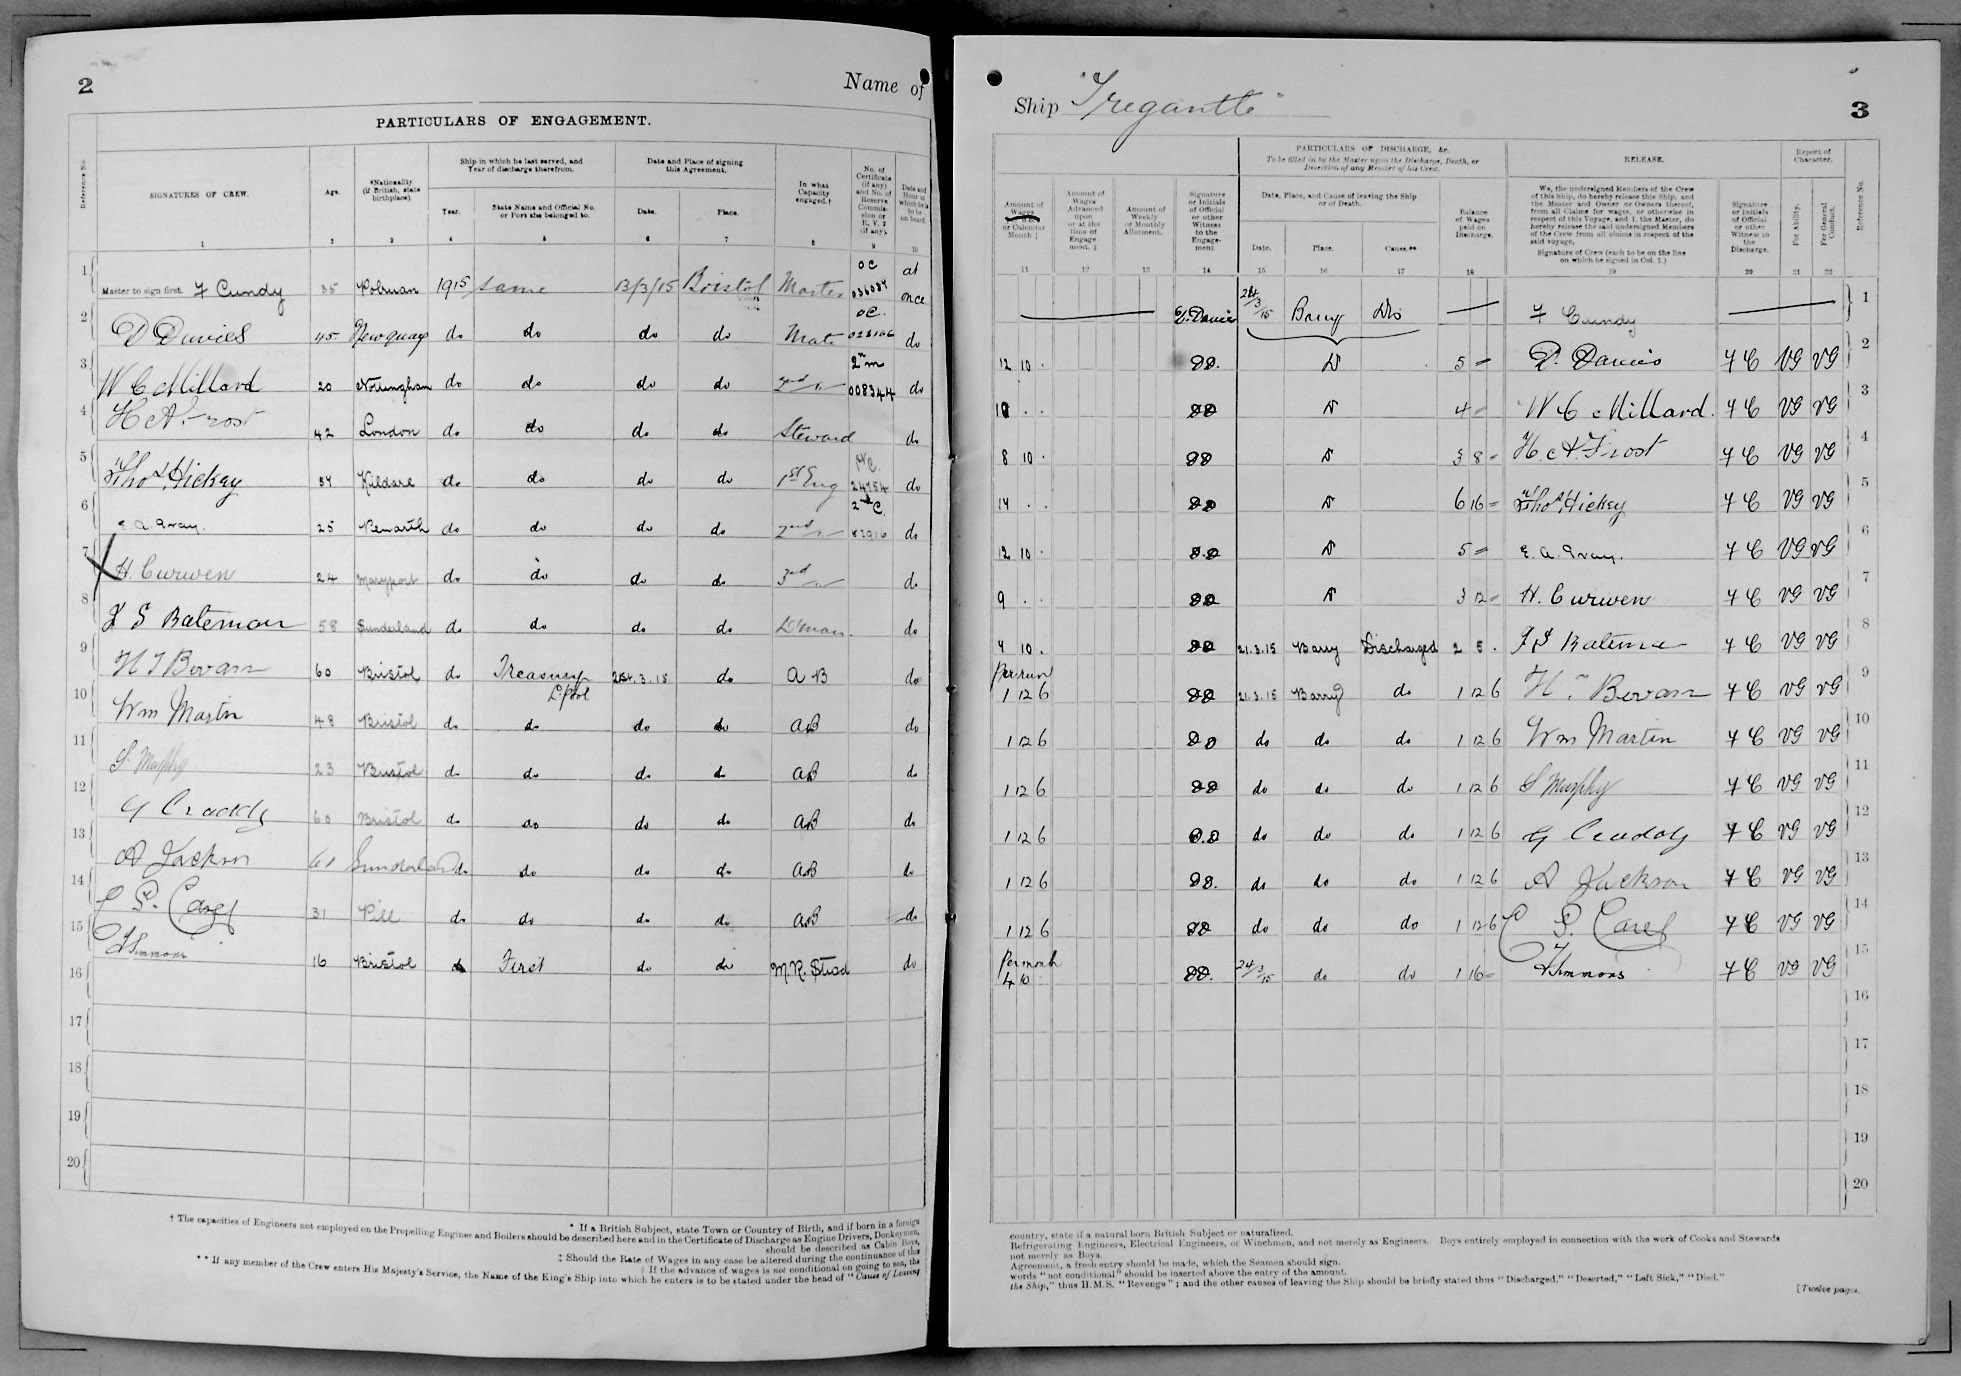 2
Name of
PARTICULARS OF ENGAGEMENT.
Reference No.
SIGNATURES OF CREW.
Age.
*Nationality (if British, state birthplace).
Ship in which he last served, and Year of discharge therefrom.
Year.
State Name and Official No. or Port she belonged to.
Date and Place of signing this Agreement.
Date.
Place.
In what Capacity engaged.†
No. of Certificate (if any) and No. of Reserve Commission or R.V.2 (if any).
Date and Hour at which he is to be on board.
1 2 3 4 5 6 7 8 9 10
1 Master to sign first. F Cundy 35 Polruan 1915 same 13/3/15 Bristol Master OC 036084 at once
2 D Davies 45 Newquay do do do do Mate OC. 023106 do
3 W C Millard 20 Nottingham do do do do 2nd " 2nd m 008344 do
4 H A Frost 42 London do do do do Steward do
5 Thos Hickey 54 Kildare do do do do 1st Eng 24754 do
6 E. A. Gray. 25 Penarth do do do do 2nd " 2nd C. 52916 do
7 H. Curwen 24 Maryport do do do do 3rd " do
8 J S Bateman 58 Sunderland do do do do D'kman. do
9 H J Bevan 60 Bristol do Treasury L'pool 21.3.15 do AB do
10 Wm Martin 48 Bristol do do do do AB do
11 S Murphy 23 Bristol do do do do AB do
12 G Craddy 60 Bristol do do do do AB do
13 A Jackson 61 Sunderland do do do do AB do
14 C P. Carey 31 Pill do do do do AB do
15 Simmons 16 Bristol do First do do M.R. Stwd do
16
17
18
19
20
* If a British Subject, state Town or Country of Birth, and if born in a foreign
† The capacities of Engineers not employed on the Propelling Engines and Boilers should be described here and in the Certificate of Discharge as Engine Drivers, Donkeymen,
should be described as Cabin Boys,
‡ Should the Rate of Wages in any case be altered during the continuance of this
‖ If the advance of wages is not conditional on going to sea, the
** If any member of the Crew enters His Majesty's Service, the Name of the King's Ship into which he enters is to be stated under the head of "Cause of Leaving
Ship "Tregantle"
3
PARTICULARS OF DISCHARGE, &c.
To be filled in by the Master upon the Discharge, Death, or Desertion of any Member of his Crew.
RELEASE.
Report of Character.
Amount of Wages or Calendar Month ‡
Amount of Wages Advanced upon or at the time of Engagement. ‖
Amount of Weekly or Monthly Allotment.
Signature or Initials of Official or other Witness to the Engagement
Date, Place, and Cause of leaving the Ship or of Death.
Date.
Place.
Cause.**
Balance of Wages paid on Discharge.
We, the undersigned Members of the Crew of this Ship, do hereby release this Ship, and the Master and Owner or Owners thereof, from all Claims for wages, or otherwise in respect of this Voyage, and I, the Master, do hereby release the said undersigned Members of the Crew from all claims in respect of the said voyage.
Signature of Crew (each to be on the line on which he signed in Col. 1.)
Signature or Initials of Official or other Witness to the Discharge.
For Ability.
For General Conduct.
Reference No.
11 12 13 14 15 16 17 18 19 20 21 22
D. Davies 24/3/15 Barry Dis F Cundy 1
12 10 . DD. D 5 - D. Davies FC VG VG 2
10 . . DD D 4 - W C Millard. FC VG VG 3
8 10 . DD D 3 8 - H. A Frost FC VG VG 4
14 . . DD D 6 16 - Thos Hickey FC VG VG 5
12 10 . D.D D 5 - E. A. Gray. FC VG VG 6
9 . . DD D 3 12 - H. Curwen FC VG VG 7
4 10 . DD 21.3.15 Barry Discharged 2 5 . J S Bateman FC VG VG 8
Per run
1 12 6 DD 21.3.15 Barry do 1 12 6 H. Bevan FC VG VG 9
1 12 6 DD do do do 1 12 6 Wm Martin FC VG VG 10
1 12 6 DD do do do 1 12 6 S Murphy FC VG VG 11
1 12 6 D.D do do do 1 12 6 G Craddy FC VG VG 12
1 12 6 DD. do do do 1 12 6 A Jackson FC VG VG 13
1 12 6 DD do do do 1 12 6 C P. Carey FC VG VG 14
Per month
4 10 DD. 24/3/15 do do 1 16 - Simmons FC VG VG 15
16
17
18
19
20
country, state if a natural born British Subject or naturalized.
Refrigerating Engineers, Electrical Engineers, or Winchmen, and not merely as Engineers. Boys entirely employed in connection with the work of Cooks and Stewards
not merely as Boys.
Agreement, a fresh entry should be made, which the Seamen should sign.
words "not conditional" should be inserted above the entry of the amount.
the Ship," thus H.M.S. "Revenge"; and the other causes of leaving the Ship should be briefly stated thus "Discharged," "Deserted," "Left Sick," "Died."
[Twelve pages.